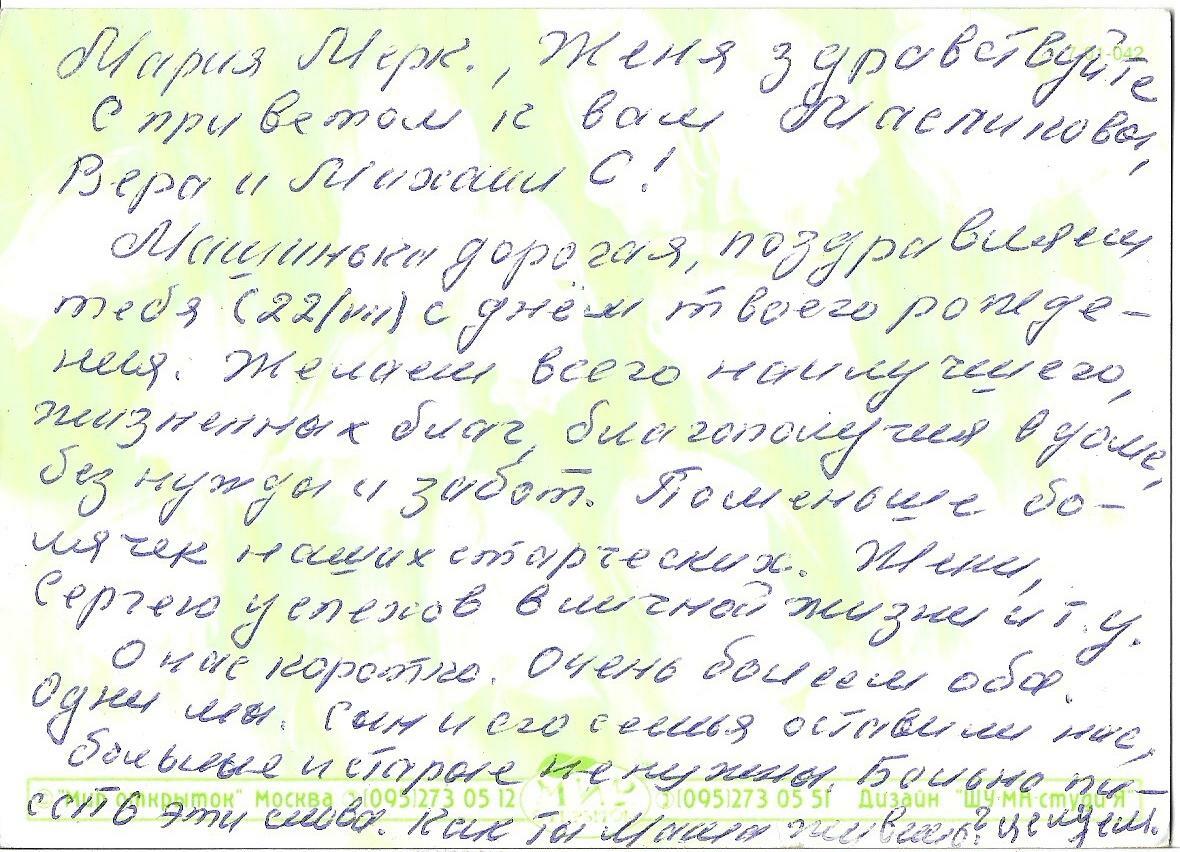 Мария Мерк., Женя здравствуйте
С приветом к вам Масликовы,
Вера и Михаил С!
Машинька дорогая, поздравляем
тебя (22/VII) с днём твоего рожде-
ния. Желаем всего наилучшего,
жизненных благ, благополучия в доме,
без нужды и забот. Поменьше бо-
лячек наших старческих. Жени,
Сергею успехов в личной жизни и т.д.
О нас коротко. Очень болеем оба.
Одни мы. Сын и его семья оставили нас,
больные и старые не нужны. Больно пи-
сать эти слова. Как ты Маша живёшь? Целуем.
© "Мир открыток" Москва (095)273 05 12 МИР (095)273 05 51 Дизайн "ШУ-МА-студия"